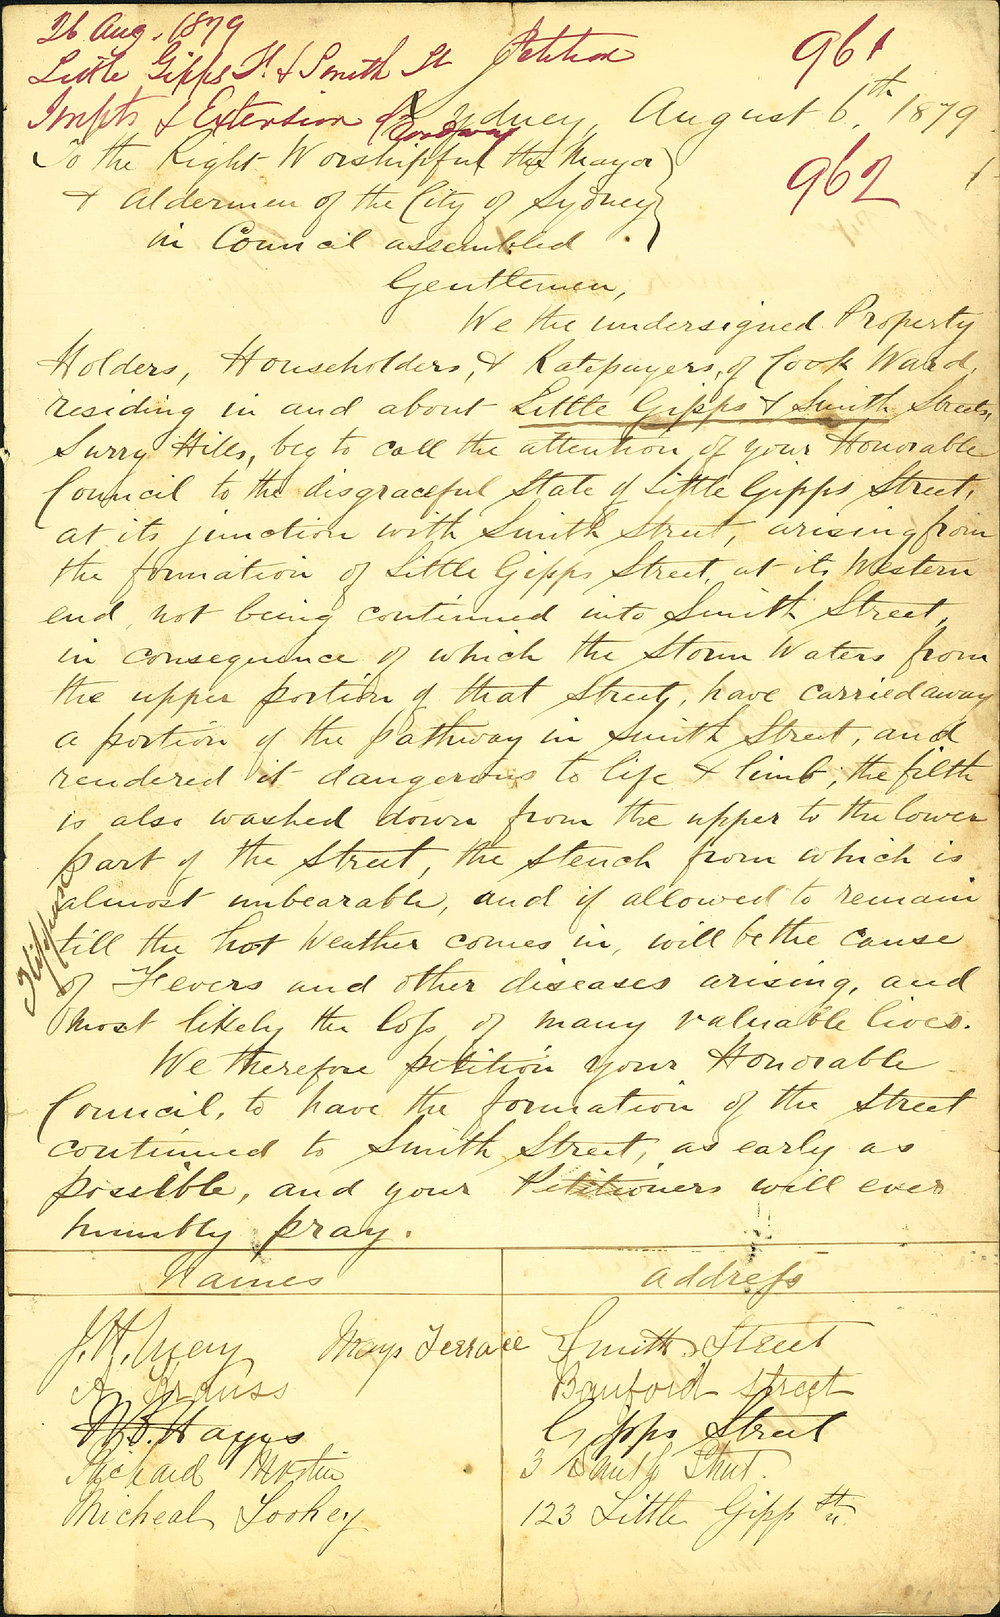 26 Aug. 1879
Little Gipps St. & Smith St Petition 961
Impts & Extension Roadway
Sydney, August 6th, 1879
962
To the Right Worshipful the Mayor
& Aldermen of the City of Sydney
in Council assembled
Gentlemen,
We the undersigned Property
Holders, Householders, & Ratepayers, of Cook Ward,
residing in and about Little Gipps & Smith Streets,
Surry Hills, beg to call the attention of your Honorable
Council to the disgraceful state of Little Gipps Street,
at its junction with Smith Street, arising from
the formation of Little Gipps Street, at its Western
end, not being continued into Smith Street,
in consequence of which the Storm Waters from
the upper portion of that Street, have carried away
a portion of the pathway in Smith Street, and
rendered it dangerous to life & limb, the filth
is also washed down from the upper to the lower
part of the Street, the stench from which is
almost unbearable, and if allowed to remain
till the hot Weather comes in, will be the cause
of Fevers and other diseases arising, and
most likely the loss of many valuable lives.
We therefore petition your Honorable
Council, to have the formation of the Street
continued to Smith Street, as early as
possible, and your Petitioners will ever
humbly pray.
Names Address
J. H. Mays Terrace Smith Street
A. Krauss Street
Hayes Gipps Street
Richard 3 Smith Street.
Micheal 123 Little Gipp St.